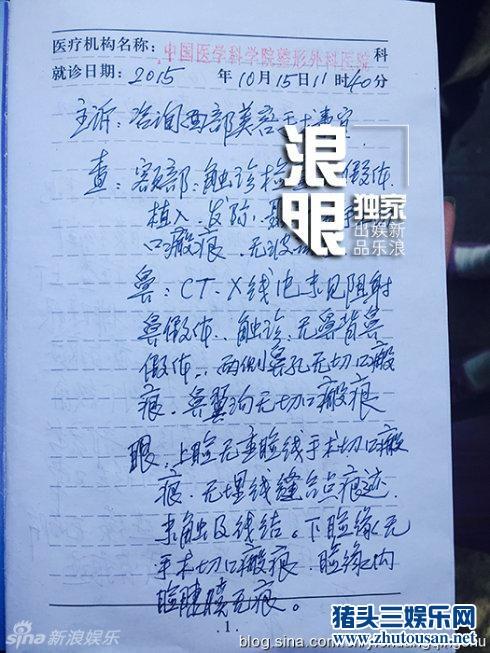 医疗机构名称:中国医学科学院整形外科医院 科
就诊日期:2015 年10月15日11时40分
主诉:咨询面部美容手术事宜
查:额部:触诊检 假体
植入.发际. 手术切
口瘢痕.无
鼻:CT.X线也未见阻射
鼻假体..触诊:无鼻背鼻
假体..两侧鼻孔无切口瘢
痕.鼻翼沟无切口瘢痕
眼.上睑无重睑线手术切口瘢
痕.无埋线缝合点痕迹.
未触及线结。下睑缘无
手术切口瘢痕.睑缘内
睑睫膜无痕。
浪眼
独家
出娱新
品乐浪
1
新浪娱乐
blog.sina.com
猪头三娱乐网
http://www.zhutousan.net